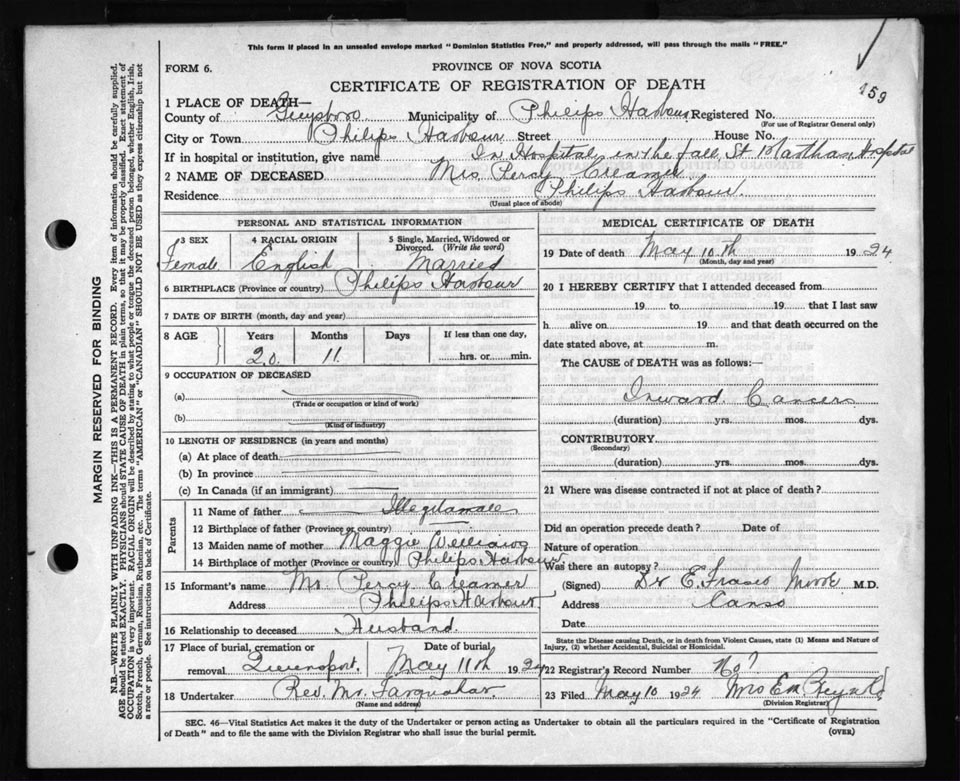 This form if placed in an unsealed envelope marked "Dominion Statistics Free," and properly addressed, will pass through the mails "FREE."
FORM 6.
PROVINCE OF NOVA SCOTIA
159
CERTIFICATE OF REGISTRATION OF DEATH
1 PLACE OF DEATH—
County of Guysboro Municipality of Philips Harbour Registered No.
(For use of Registrar General only)
City or Town Philips Harbour Street House No.
If in hospital or institution, give name In Hospital in the fall St Marthas Hospital
2 NAME OF DECEASED Mrs. Percy Creamer
Residence Philips Harbour.
(Usual place of abode)
PERSONAL AND STATISTICAL INFORMATION
3 SEX 4 RACIAL ORIGIN 5 Single, Married, Widowed or Divorced. (Write the word)
Female English Married
6 BIRTHPLACE (Province or country) Philips Harbour
7 DATE OF BIRTH (month, day and year)
8 AGE Years Months Days If less than one day,
20. 11. hrs. or min.
9 OCCUPATION OF DECEASED
(a)
(Trade or occupation or kind of work)
(b)
(Kind of industry)
10 LENGTH OF RESIDENCE (in years and months)
(a) At place of death
(b) In province
(c) In Canada (if an immigrant)
Parents
11 Name of father Illegitamate
12 Birthplace of father (Province or country)
13 Maiden name of mother Maggie Williams
14 Birthplace of mother (Province or country) Philips Harbour
15 Informant's name Mr. Percy Creamer
Address Philips Harbour
16 Relationship to deceased Husband.
17 Place of burial, cremation or removal Queensport. Date of burial May 11th 1924
18 Undertaker Rev. Mr. Farquahar
(Name and address)
MEDICAL CERTIFICATE OF DEATH
19 Date of death May 10th 1924
(Month, day and year)
20 I HEREBY CERTIFY that I attended deceased from
19 to 19 that I last saw
h alive on 19 and that death occurred on the
date stated above, at m.
The CAUSE of DEATH was as follows:—
Inward Cancers
(duration) yrs. mos. dys.
CONTRIBUTORY
(Secondary)
(duration) yrs. mos. dys.
21 Where was disease contracted if not at place of death?
Did an operation precede death? Date of
Nature of operation
Was there an autopsy?
(Signed) Dr E. Fraser M.D.
Address Canso
Date
State the Disease causing Death, or in death from Violent Causes, state (1) Means and Nature of Injury, (2) whether Accidental, Suicidal or Homicidal.
22 Registrar's Record Number No 7
23 Filed May 10 1924 Mrs E M Reynolds
(Division Registrar)
SEC. 46—Vital Statistics Act makes it the duty of the Undertaker or person acting as Undertaker to obtain all the particulars required in the "Certificate of Registration
of Death" and to file the same with the Division Registrar who shall issue the burial permit.
(OVER)
MARGIN RESERVED FOR BINDING
N.B.—WRITE PLAINLY WITH UNFADING INK—THIS IS A PERMANENT RECORD. Every item of information should be carefully supplied.
AGE should be stated EXACTLY. PHYSICIANS should STATE CAUSE OF DEATH in plain terms, so that it may be properly classified. Exact statement of
OCCUPATION is very important. RACIAL ORIGIN will be described by stating to what people or tongue the deceased person belonged, whether English, Irish,
Scotch, French, German, Russian, Ruthenian, etc. The terms "AMERICAN" or "CANADIAN" SHOULD NOT BE USED as they express citizenship but not
a race or people. See instructions on back of Certificate.